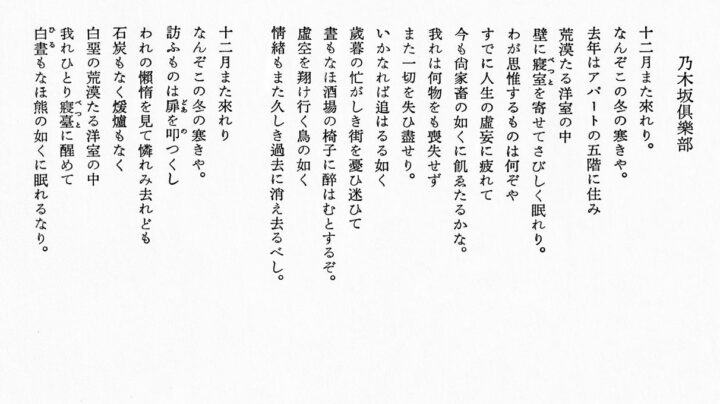 乃木坂倶樂部
十二月また來れり。
なんぞこの冬の寒きや。
去年はアパートの五階に住み
荒漠たる洋室の中
壁に寢室(べつと)を寄せてさびしく眠れり。
わが思惟するものは何ぞや
すでに人生の虛妄に疲れて
今も尙家畜の如くに飢ゑたるかな。
我れは何物をも喪失せず
また一切を失ひ盡せり。
いかなれば追はるる如く
歲暮の忙がしき街を憂ひ迷ひて
晝もなほ酒場の椅子に醉はむとするぞ。
虛空を翔け行く鳥の如く
情緖もまた久しき過去に消え去るべし。
十二月また來れり
なんぞこの冬の寒きや。
訪ふものは扉(どあ)を叩(の)つくし
われの懶惰を見て憐れみ去れども
石炭もなく煖爐もなく
白堊の荒漠たる洋室の中
我れひとり寢臺(べつと)に醒めて
白晝(ひる)もなほ熊の如くに眠れるなり。